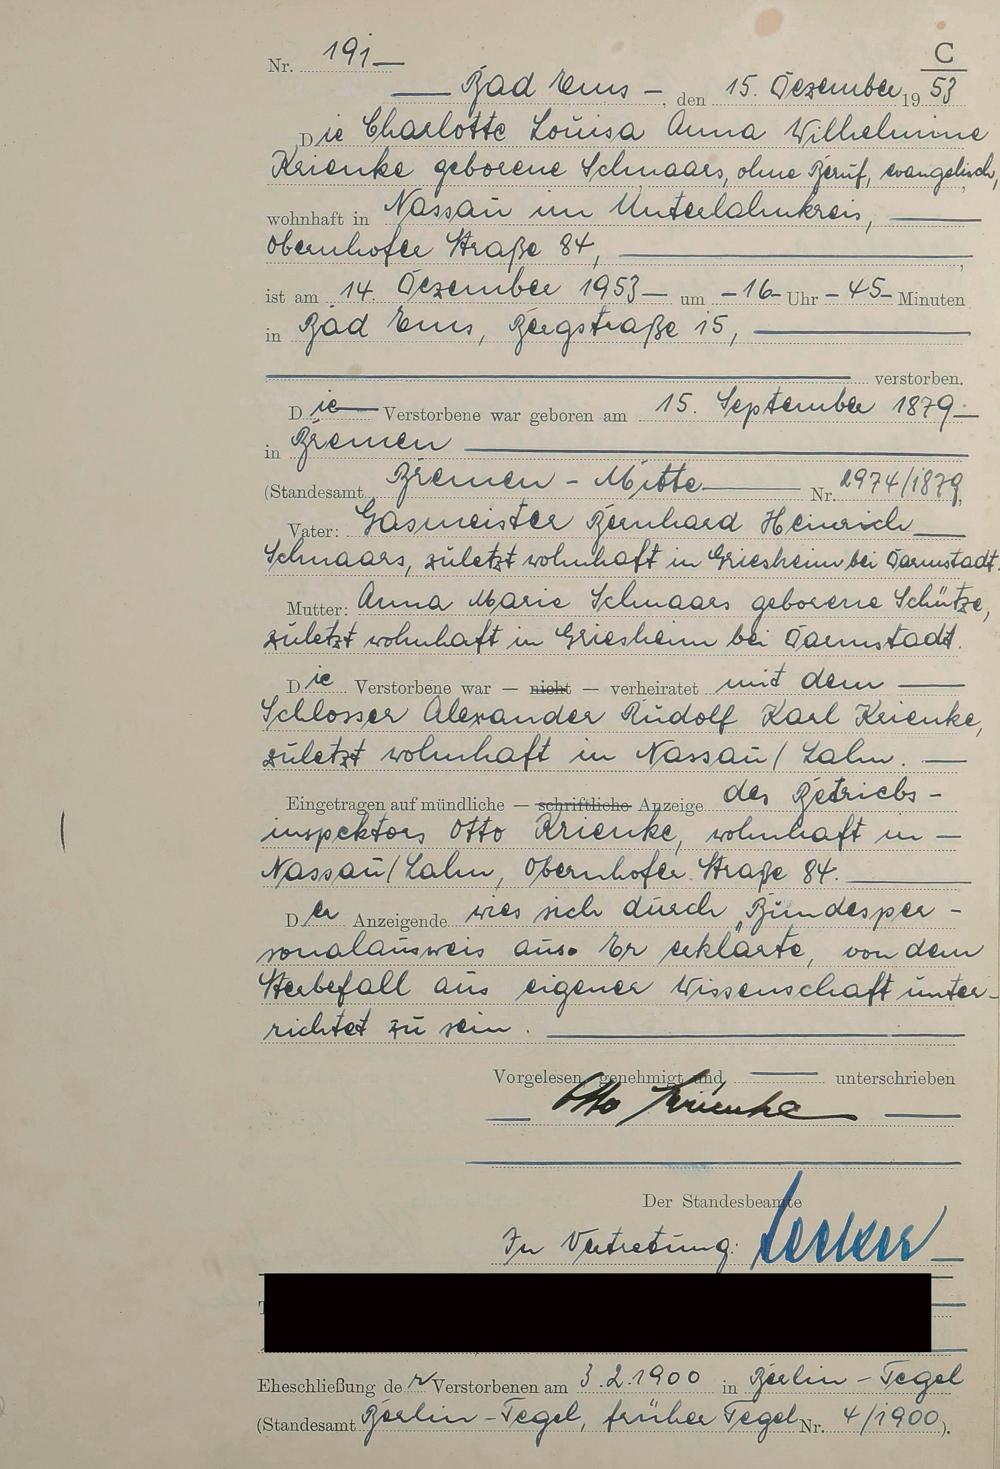 C
Nr. 191
Bad Ems –, den 15. Dezember 19 53
Die Charlotte Louisa Anna Wilhelmine
Krienke geborene Schnaars, ohne Beruf, evangelisch,
wohnhaft in Nassau im Unterlahnkreis,
Obernhofer Straße 84,
ist am 14. Dezember 1953 – um – 16 – Uhr – 45 – Minuten
in Bad Ems, Bergstraße 15,
verstorben.
Die Verstorbene war geboren am 15. September 1879
in Bremen
(Standesamt Bremen - Mitte Nr. 2974/1879
Vater: Gasmeister Bernhard Heinrich
Schnaars, zuletzt wohnhaft in Griesheim bei Darmstadt.
Mutter: Anna Marie Schnaars geborene Schütze,
zuletzt wohnhaft in Griesheim bei Darmstadt.
Die Verstorbene war — nicht — verheiratet mit dem
Schlosser Alexander Rudolf Karl Krienke,
zuletzt wohnhaft in Nassau / Lahn.
Eingetragen auf mündliche — schriftliche Anzeige des Betriebs-
inspektors Otto Krienke, wohnhaft in
Nassau/Lahn, Obernhofer Straße 84.
Der Anzeigende wies sich durch „Bundesper-
sonalausweis aus. Er erklärte, von dem
Sterbefall aus eigener Wissenschaft unter-
richtet zu sein.
Vorgelesen, genehmigt und unterschrieben
Otto Krienke
Der Standesbeamte
In Vertretung:
Eheschließung der Verstorbenen am 3.2.1900 in Berlin - Tegel
(Standesamt Berlin - Tegel, früher Tegel Nr. 4/1900).